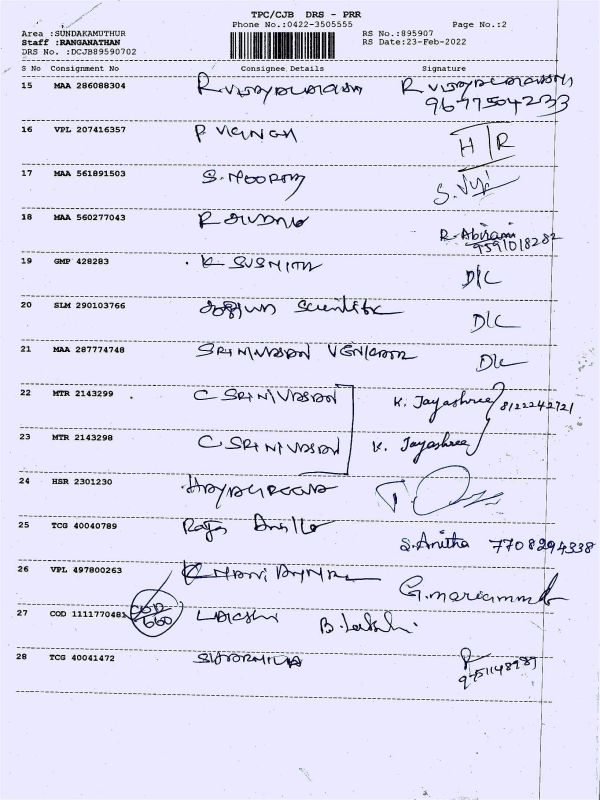 TPC/CJB DRS - PRR
Phone No.:0422-3505555 Page No.:2
Area :SUNDAKAMUTHUR RS No.:895907
Staff :RANGANATHAN RS Date:23-Feb-2022
DRS No. :DCJB89590702
S No Consignment No Consignee Details Signature
15 MAA 286088304 R
9677504233
16 VPL 207416357 P VIGNESH H/R
17 MAA 561891503 S. S.
18 MAA 560277043 R R. Abirami
9591018282
19 GMP 428283 K SUSMITH D/C
20 SLM 290103766 Scientific D/C
21 MAA 287774748 SRINIVASAN D/C
22 MTR 2143299 C SRINIVASAN K. Jayashree 8122242721
23 MTR 2143298 C SRINIVASAN K. Jayashree
24 HSR 2301230
25 TCG 40040789 Raja S. Anitha 7708294338
26 VPL 497800263 G. mariammal
27 COD 1111770481 COD 660 LAKSHI B. Lakshi
28 TCG 40041472
9751148989